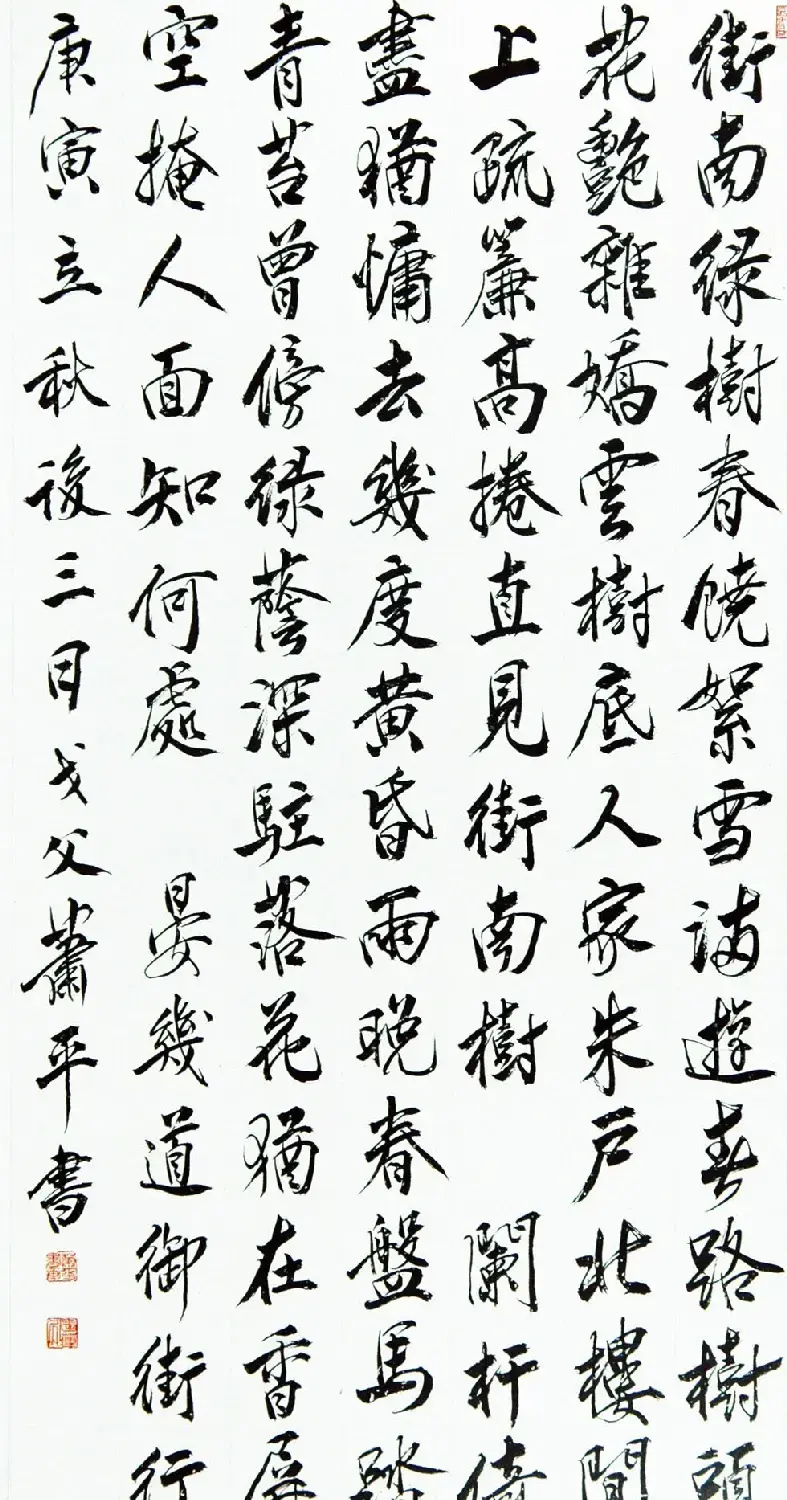 街南緑樹春饒絮雪満遊春路樹頭
花艶雜嬌雲樹底人家朱戶北樓閒
上疏簾高捲直見街南樹 闌杆倚
盡猶慵去幾度黄昏雨晚春盤馬踏
青苔曾傍緑蔭深駐落花猶在香屏
空掩人面知何處 晏幾道御街行
庚寅立秋後三日戈父蕭平書